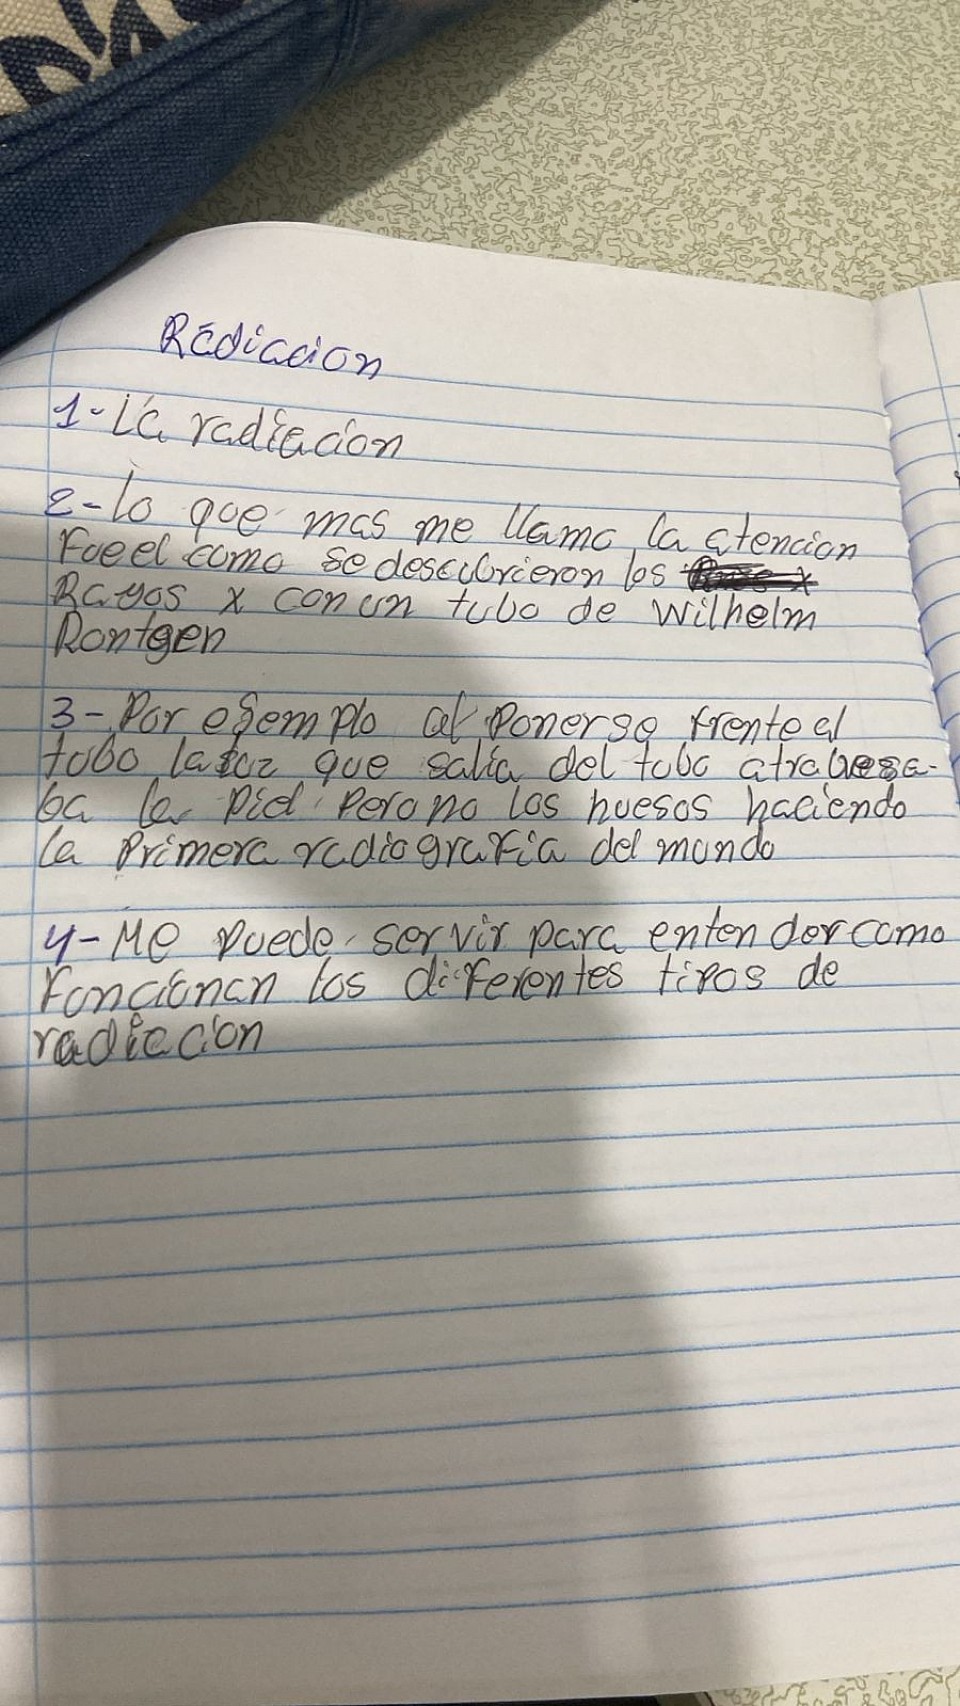 Radiacion
1-La radiacion
2-lo que mas me llamo la atencion
Fue el como se descubrieron los
Rayos x con un tubo de Wilhelm
Rontgen
3-Por ejemplo al Ponerse frente al
tubo la luz que salia del tubo atravesa-
ba la Piel Pero no los huesos haciendo
la Primera radiografia del mundo
4-Me puede servir para entender como
Funcionan los diferentes tipos de
radiacion